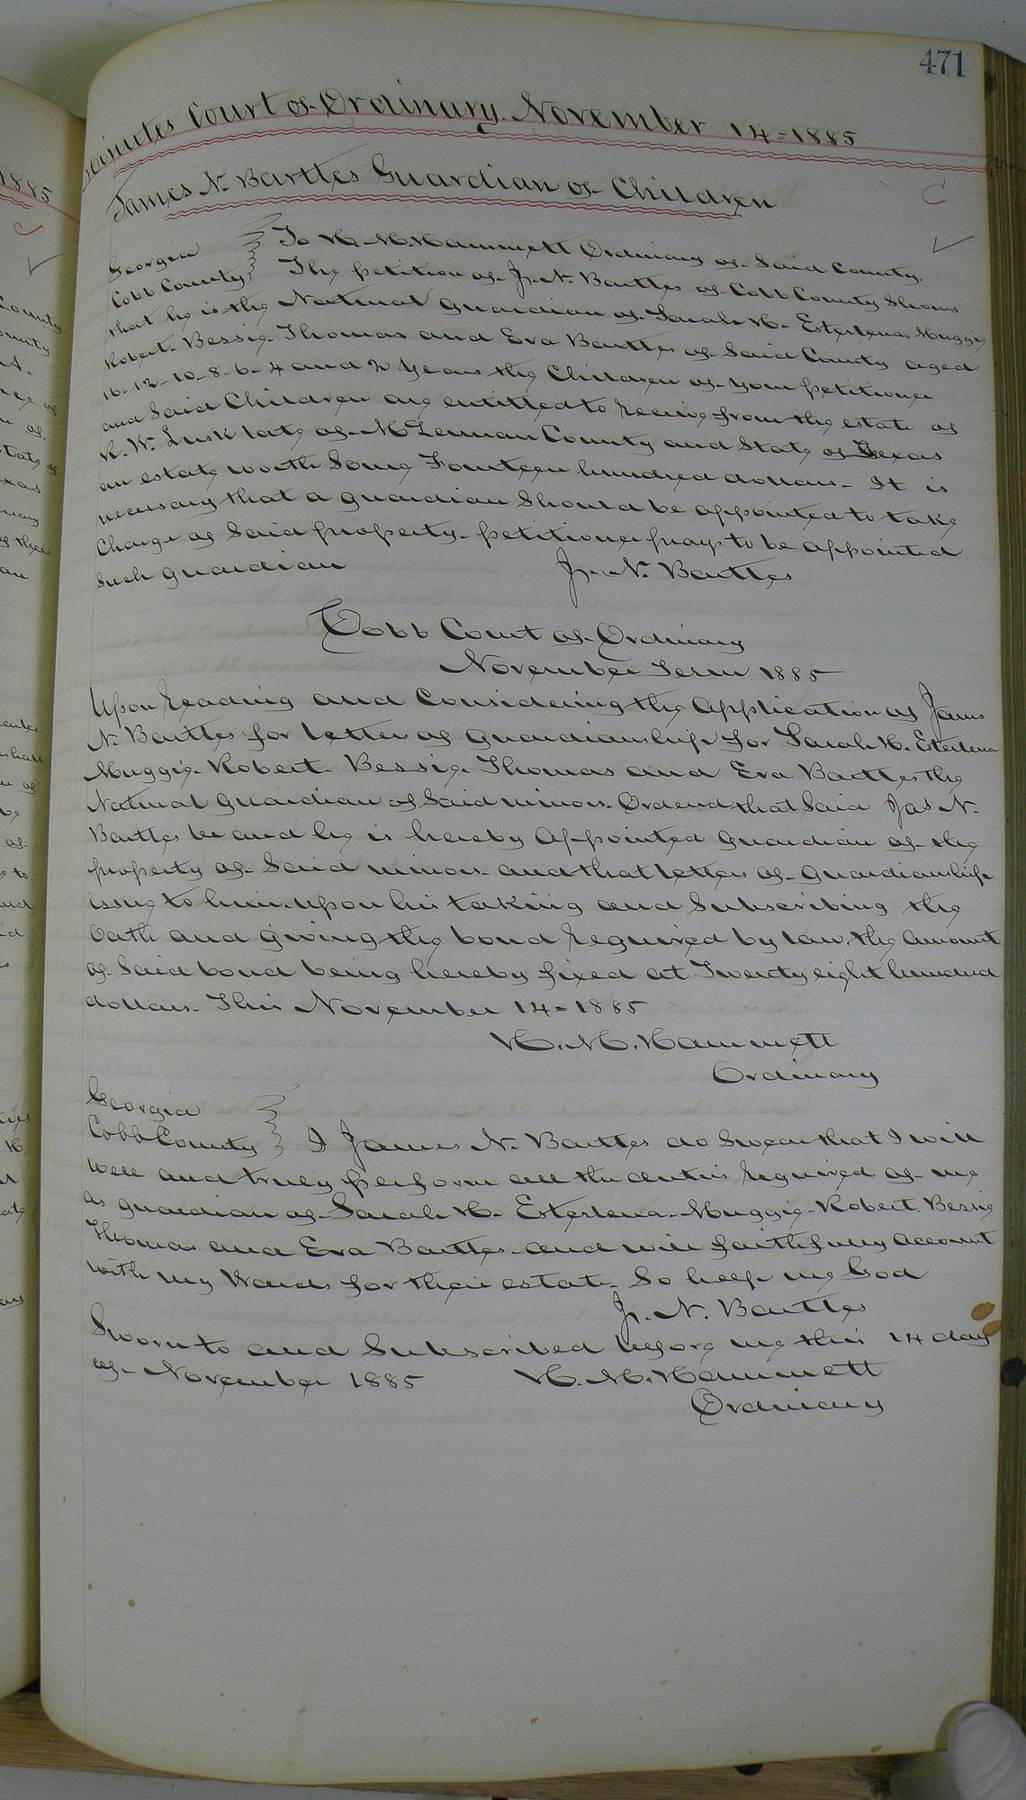 471
Minutes Court of Ordinary. November 14=1885
James N. Bartles Guardian of Children
Georgia
Cobb County
To H. M. Hammett Ordinary of Said County.
The petition of J. N. Bartles of Cobb County Shows
that he is the Natural guardian of Sarah H. Esterlena Muggie
Robert. Bessie. Thomas and Eva Bartles of Said County aged
16-12-10-8-6-4 and 2 years the Children of your petitioner
and Said Children are entitled to receive from the estate of
R. W. Lusk late of McLennan County and State of Texas
an estate worth Some Fourteen hundred dollars- It is
necessary that a guardian Should be appointed to take
Charge of Said property- petitioner prays to be appointed
Such guardian
J. N. Bartles
Cobb Court of Ordinary
November Term 1885
Upon reading and Considering the Application of James
N. Bartles for letters of guardianship for Sarah H. Esterlena
Muggie. Robert. Bessie. Thomas and Eva Bartles the
Natural guardian of Said minors. Ordered that Said Jas N.
Bartles be and he is hereby Appointed guardian of the
property of Said minors- and that letters of guardianship
issue to him. upon his taking and Subscribing the
Oath and giving the bond required by law. the amount
of Said bond being hereby fixed at Twenty eight hundred
dollars. This November 14=1885
H. M. Hammett
Ordinary
Georgia
Cobb County
I James N. Bartles do Swear that I will
well and truly perform all the duties required of me
as guardian of Sarah H. Esterlena. Muggie. Robert. Bessie
Thomas and Eva Bartles. and will faithfully account
with my Wards for their estate. So help me God
J. N. Bartles
Sworn to and Subscribed before me this 14 day
of November 1885
H. M. Hammett
Ordinary